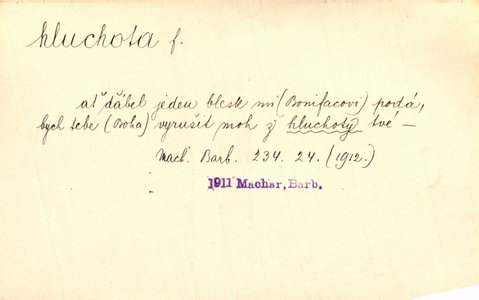 hluchota f.
ať ďábel jeden blesk mi (Bonifacovi) podá,
bych tebe (Boha) vyrušit moh z hluchoty tvé —
Mach. Barb. 234. 24. (1912.)
1911 Machar, Barb.